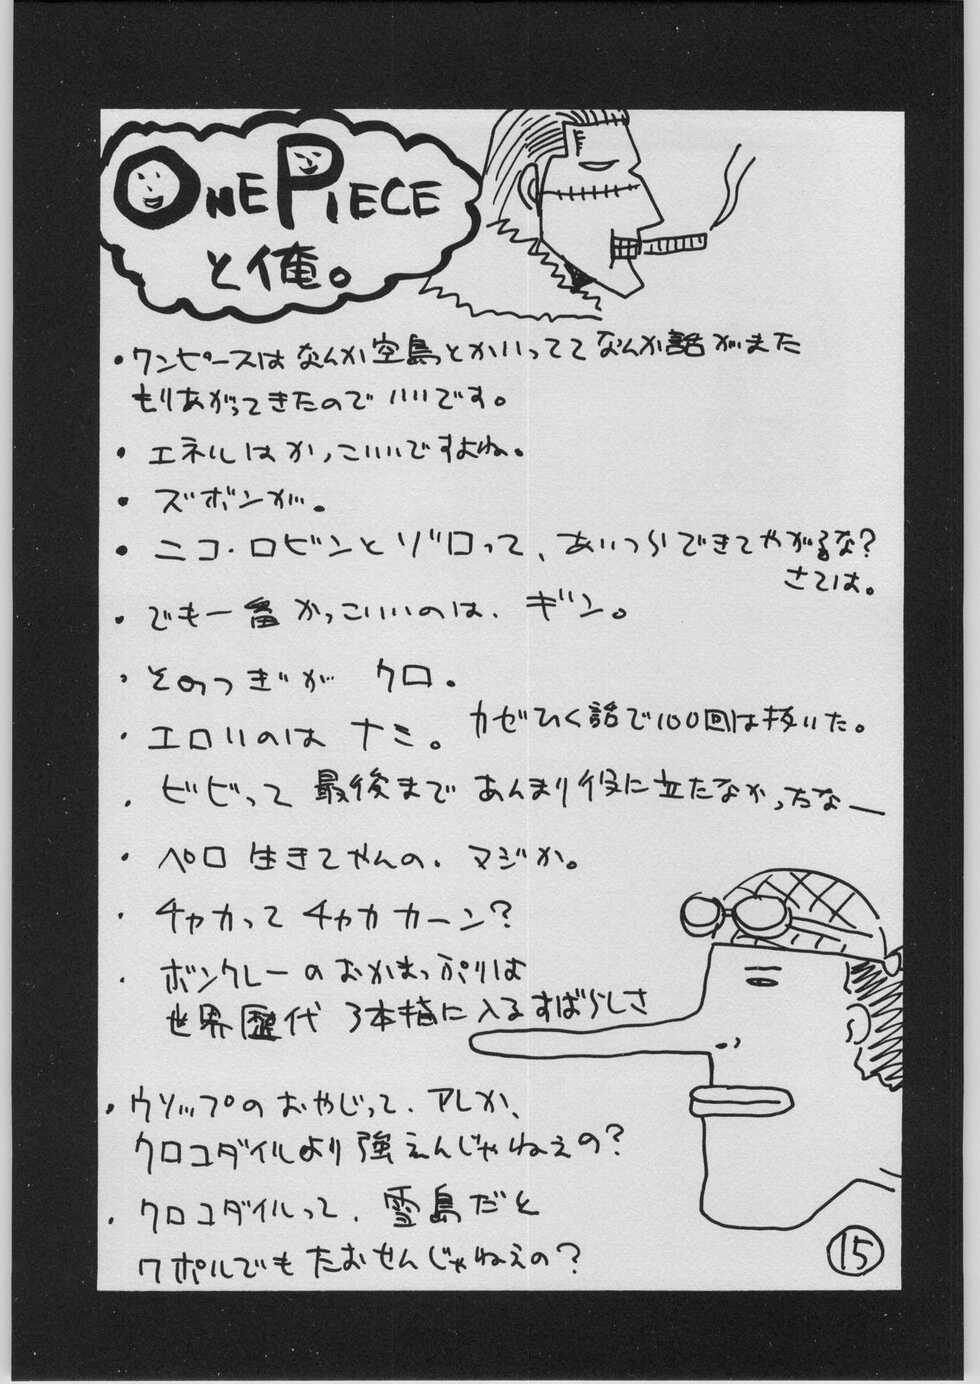 ONE PIECE
と俺。
・ワンピースはなんか空島とかいっててなんか話がまた
もりあがってきたのでいいです。
・エネルはかっこいいですよね。
・ズボンが。
・ニコ・ロビンとゾロって、あいつらできてやがるな?
さては。
・でも一番かっこいいのは、ギン。
・そのつぎが クロ。
・エロいのは ナミ。カゼひく話で100回は抜いた。
・ビビって 最後まで あんまり役に立たなかったなー
・ペロ 生きてやんの。マジか。
・チャカって チャカカーン?
・ボンクレーのおかまっぷりは
世界歴代 3本指に入るすばらしさ
・ウソップのおやじって、アレか、
クロコダイルより強えんじゃねえの?
・クロコダイルって、雪島だと
ワポルでもたおせんじゃねえの?
15